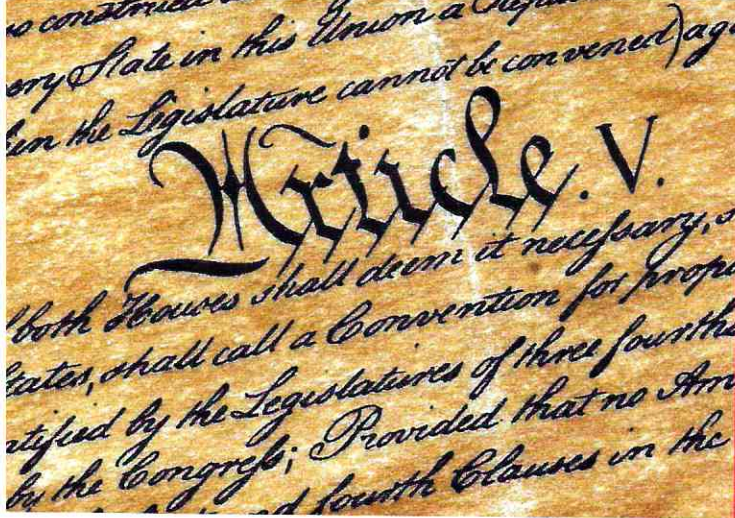 construed
ery State in this Union a
the Legislature cannot be convened) aga
Article. V.
both Houses shall deem it necessary, 
tates, shall call a Convention for propo
atified by the Legislatures of three fourths
by the Congress; Provided that no Am
fourth Clauses in the